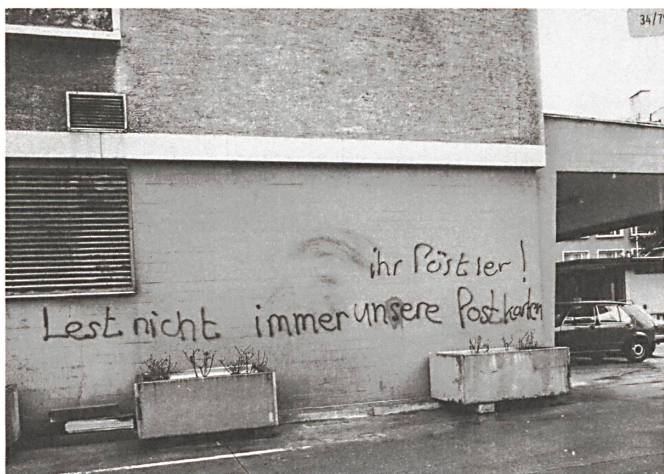 ihr Pöstler!
Lest nicht immer unsere Postkarten